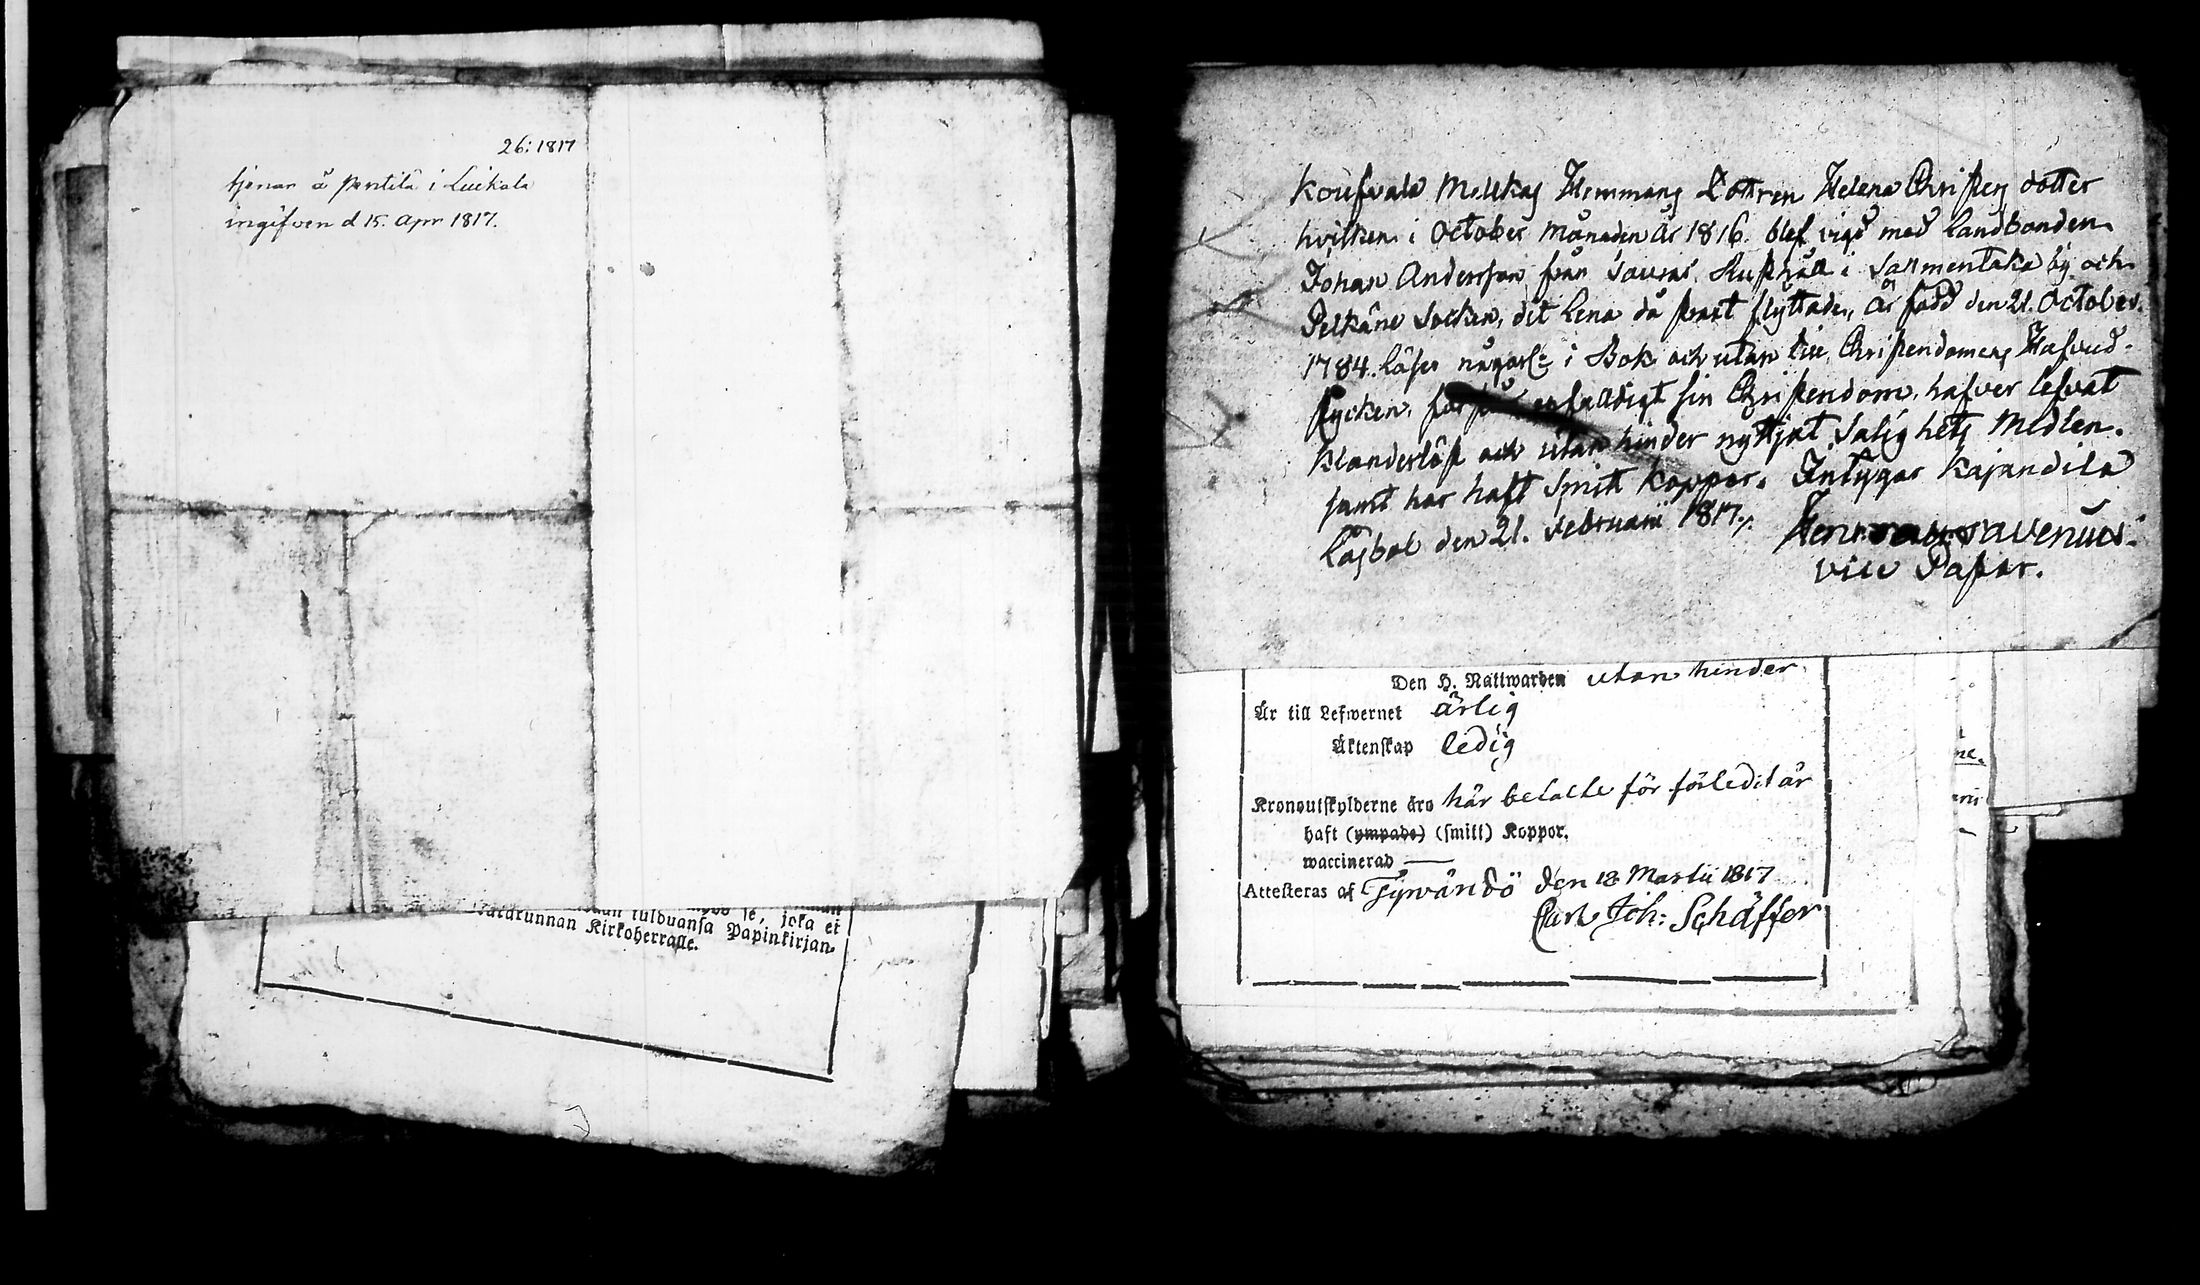 26: 1817
tjenar å Pentilä i Luikala
ingifven d 15. Apr 1817.
tulduansa Papinkirjan-
se, joka ei
Kirkoherralle.
Koufvala Mellkas Hemmans Dottren Helena Christers dotter
hvilken i October månaden år 1816. blef vigd med landbonden
Johan Andersson från Rusthåll i Salmentaka by och
Pelkäne Socken, dit Lena då flyttade, är född den 21. October
1784. läser i Bok och utan till Christendomens Hufvud-
stycken, enfalldigt sin Christendom, hafver lefvat
klanderlöst och utan hinder nyttjat Salighets Medlen.
samt har haft Smitt koppor. Intygar Kajandila
den 21. Februarii 1817.
vice Pastor.
Den H. Nattwarden utan hinder
Är till Lefwernet ärlig
Äktenskap ledig
Kronoutskylderne äro här betalte för förledit år
haft (ympade) (smitt) Koppor.
waccinerad —
Attesteras af Tyrvändö den 18 Martii 1817
Carl Joh: Schäffer